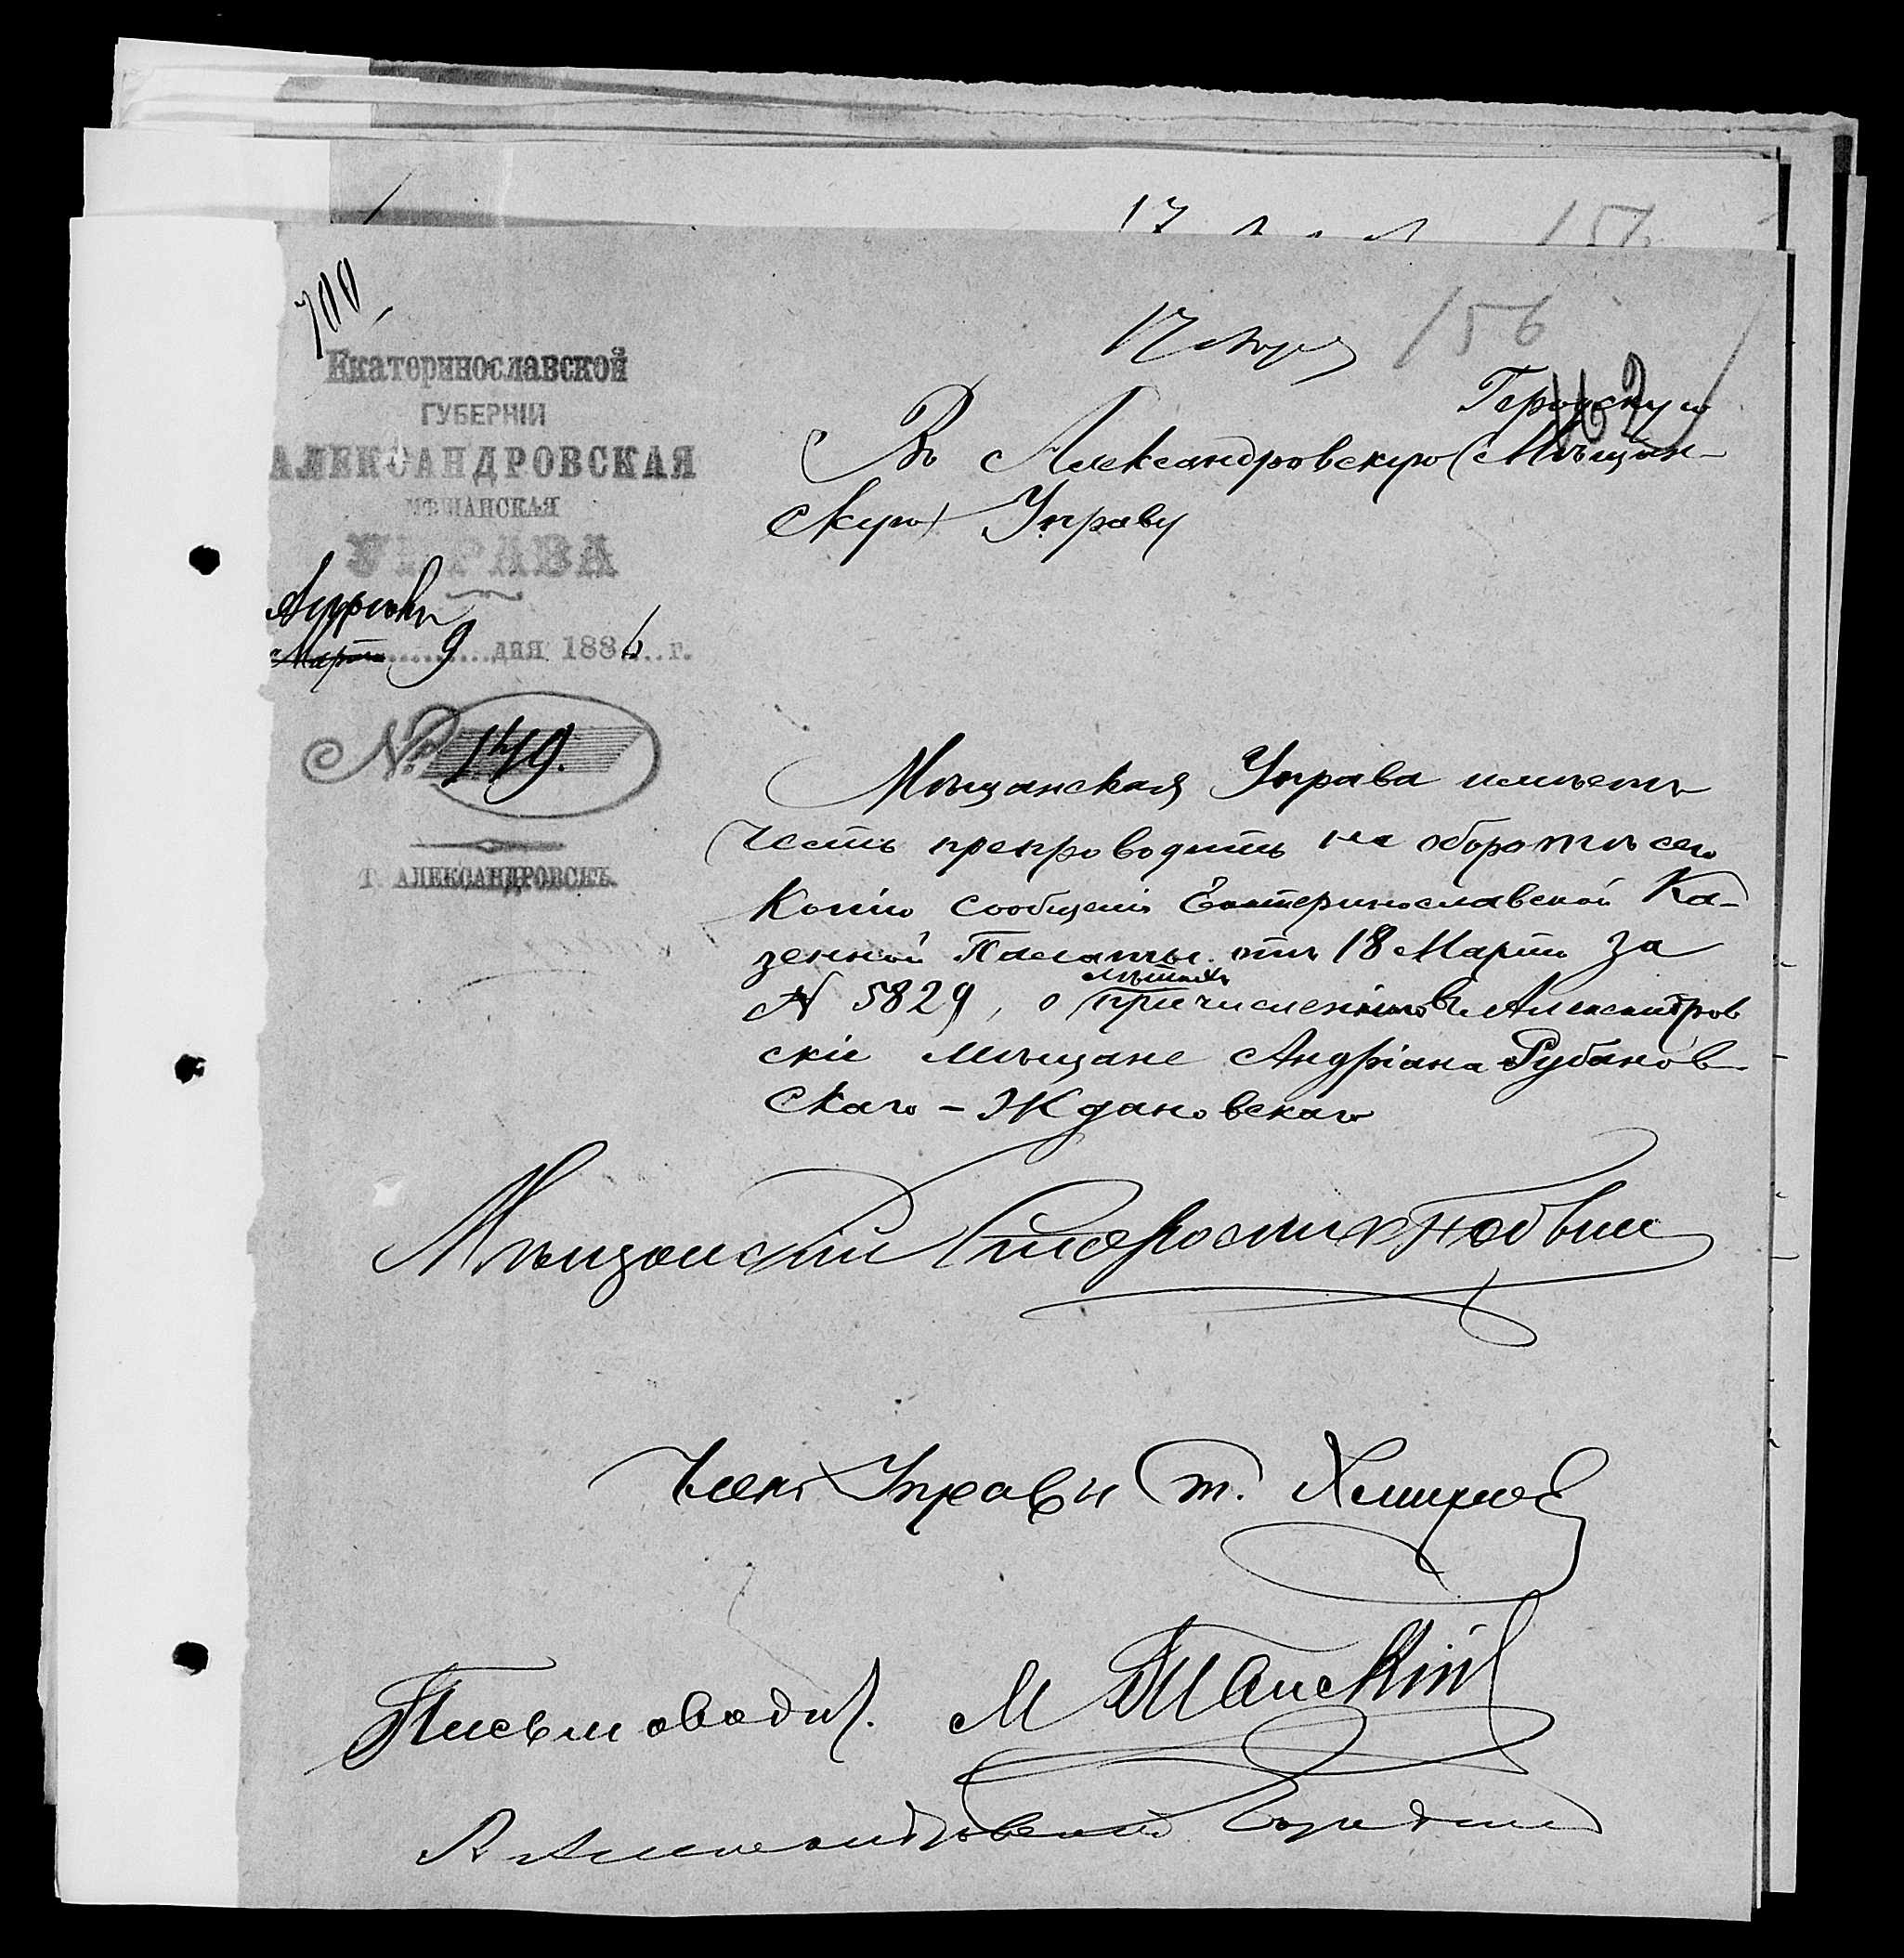 17
157
700
17 Апр
156
162
Екатеринославской
ГУБЕРНІИ
АЛЕКСАНДРОВСКАЯ
МѢЩАНСКАЯ
УПРАВА
Апрѣля
Марта 9 дня 1886 г.
№ 149.
Г. АЛЕКСАНДРОВСКЪ.
Городскую
Въ Александровскую Мѣщан-
скую Управу
Мѣщанская Управа имѣетъ
честь препроводить на оборотѣ сего
копію сообщенія Екатеринославской Ка-
зенной Палаты отъ 18 Марта за
N 5829, о причисленіи въ Александров
скіе мѣщане Андріана Рубанов-
скаго - Ждановскаго
Мѣщанскій Староста
Членъ Управы
Письмоводит. М